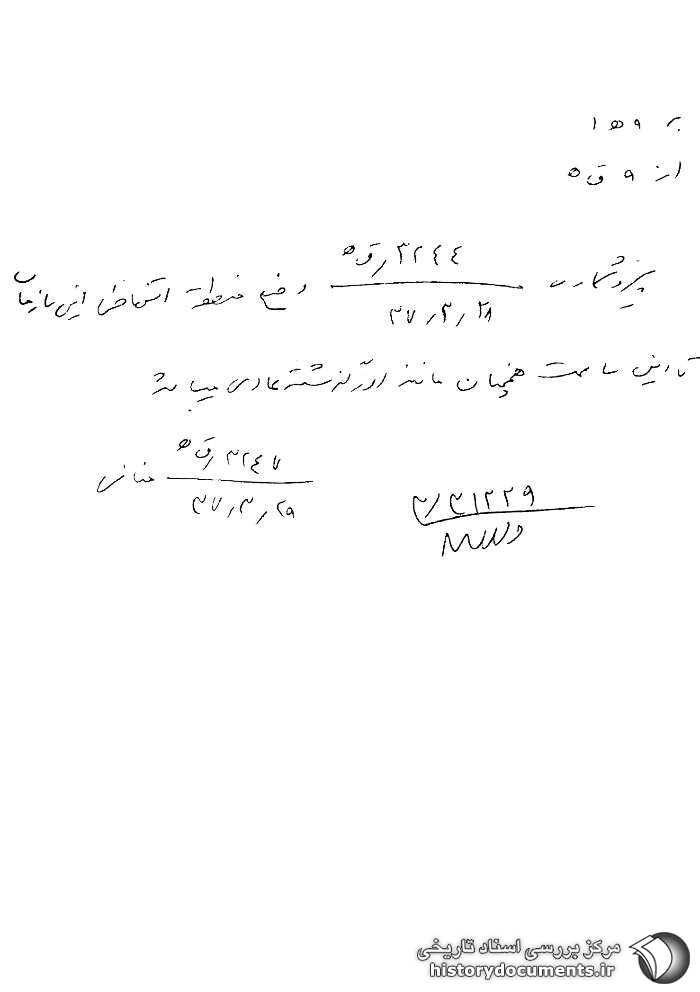 به ۹ ه‍ ۱
از ۹ ق ه‍
پیرو شماره ۳۲۴۴/ق ه‍
۳۷/۳/۲۸
وضع منطقه استحفاظی این سازمان
تا این ساعت همچنان مانند روز گذشته عادی میباشد
۳۲۴۷/ق ه‍
۳۷/۳/۲۹
۳۱۲۲۹
مرکز بررسی اسناد تاریخی
historydocuments.ir